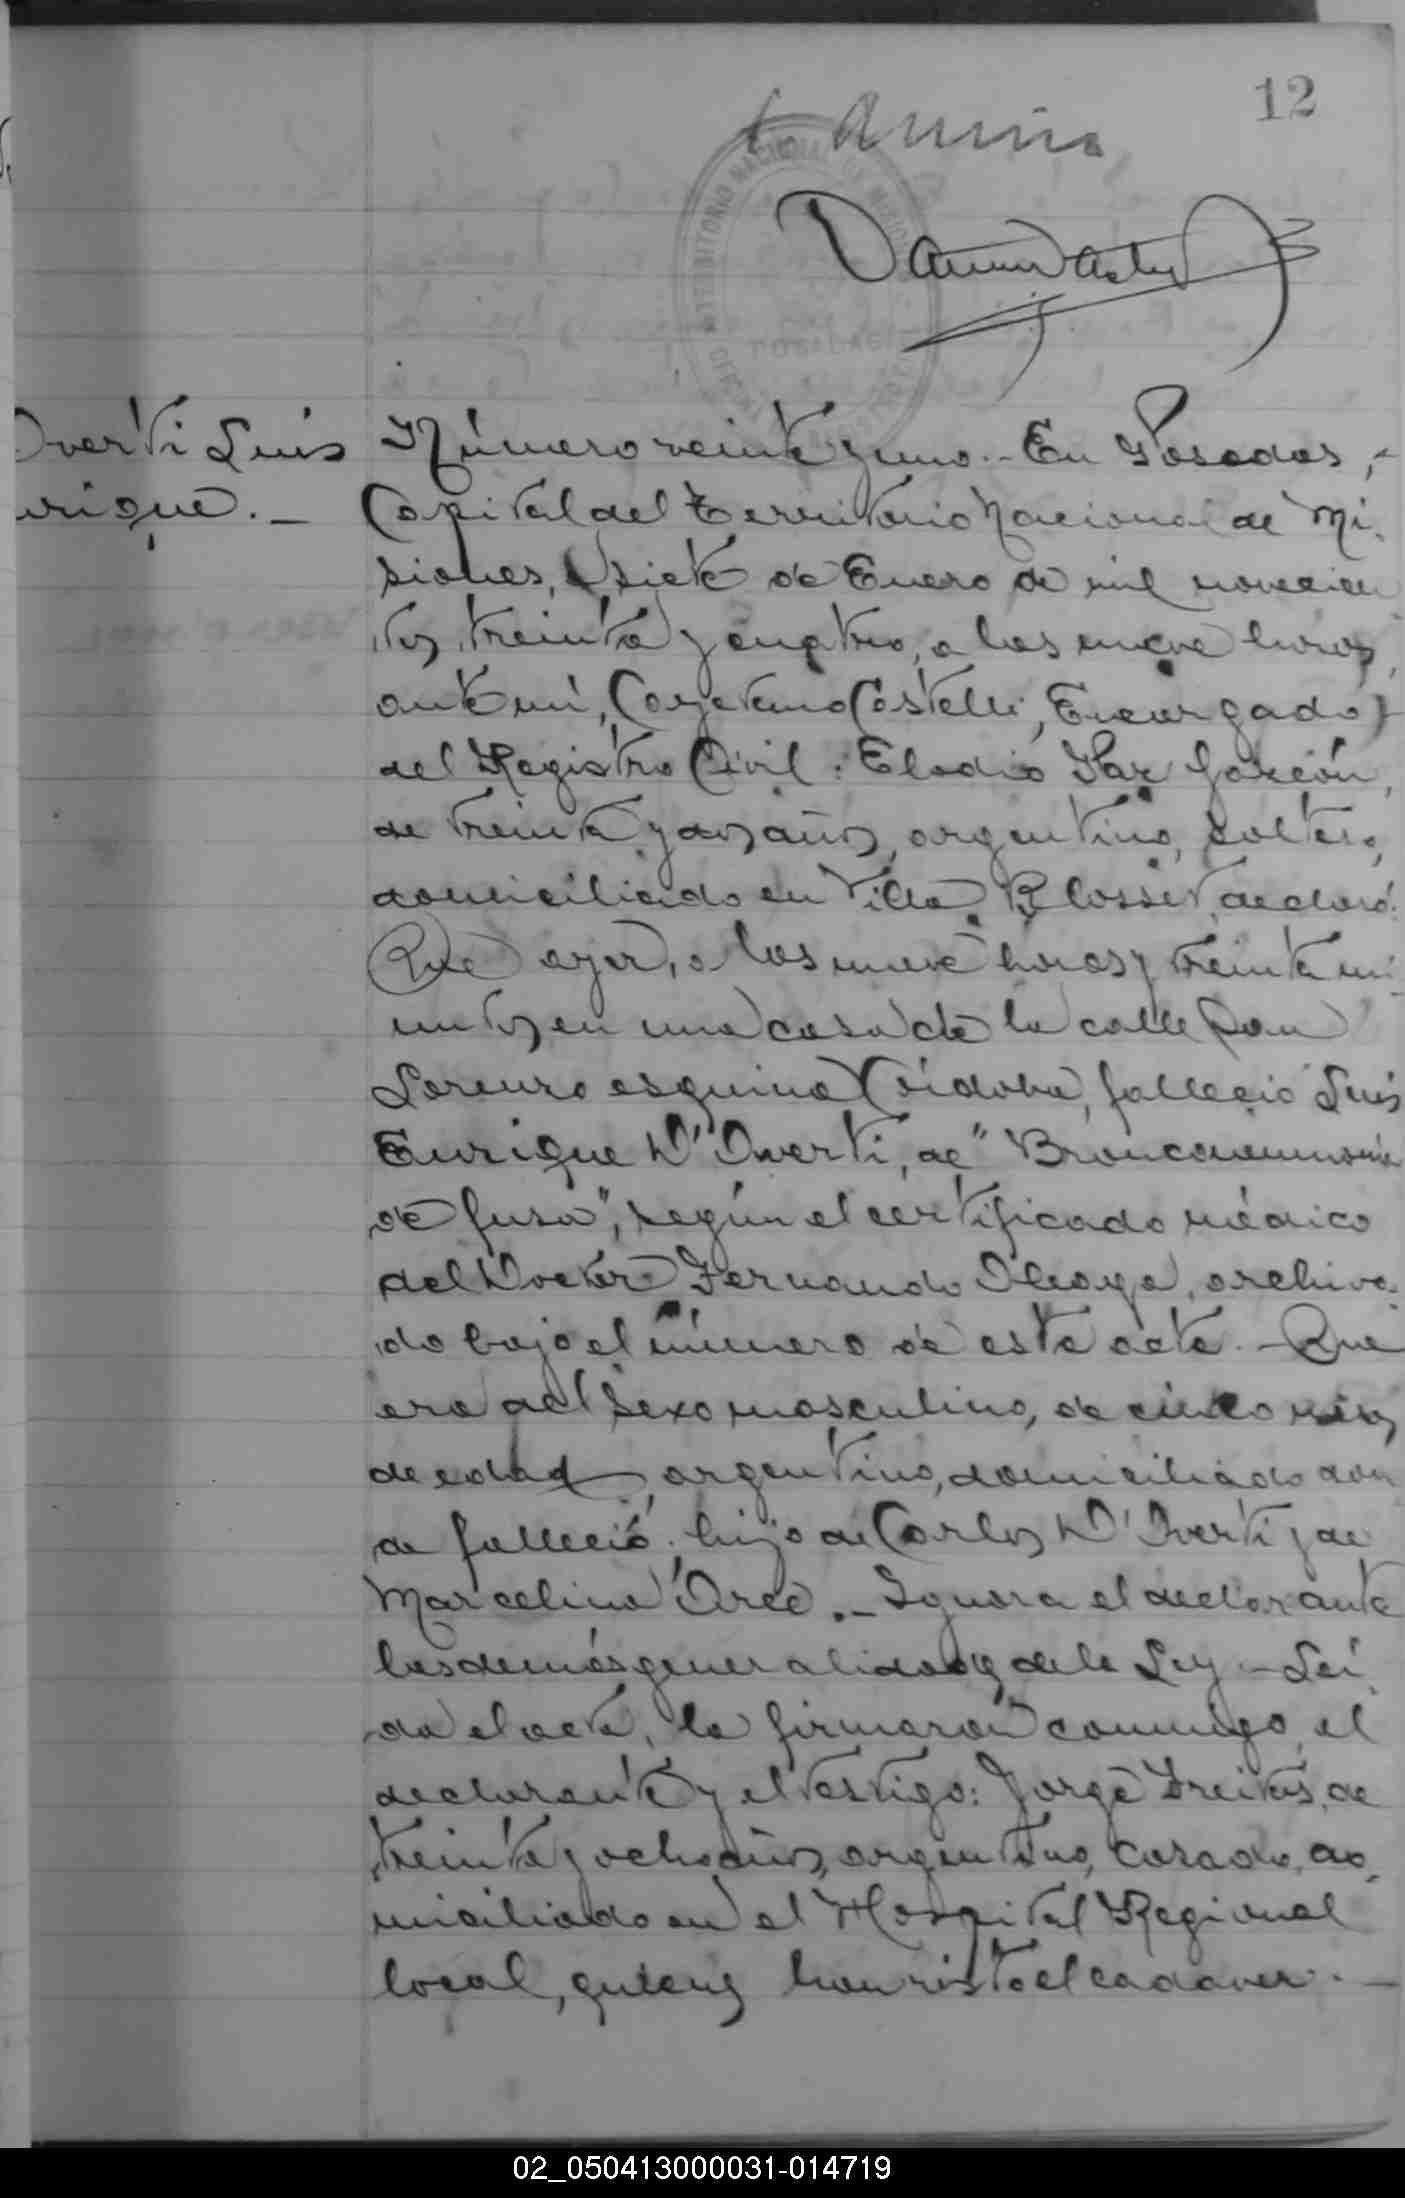 12
Overti Luis
Número veinte y uno.- En Posadas,-
rique.-
Capital del Territorio Nacional de Mi-
siones, a siete de Enero de mil novecien
tos treinta y cuatro, a las nueve horas,
ante mí, Cayetano Castelli, Encargado
del Registro Civil: Eladio Paz Garzón,
de treinta y dos años, argentino, soltero,
domiciliado en Villa Blosset, declaró:
Que ayer, a las nueve horas y treinta mi-
nutos en una casa de la calle San
Lorenzo esquina Córdoba, falleció Luis
Enrique D'Overti, de "Bronconeumonia
difusa", según el certificado médico
del Doctor Fernando Eleaga, archiva-
do bajo el número de este acta.- Que
era del sexo masculino, de cinco meses
de edad, argentino, domiciliado don
de falleció, hijo de Carlos D'Overti y de
Marcelina Arce.- Ignora el declarante
las demás generalidades de la Ley.- Leí
da el acta, la firmaron conmigo, el
declarante y el testigo: Jorge Freitas, de
treinta y ocho años, argentino, casado, do-
miciliado en el Hospital Regional
local, quienes han visto el cadaver.-
02_050413000031-014719